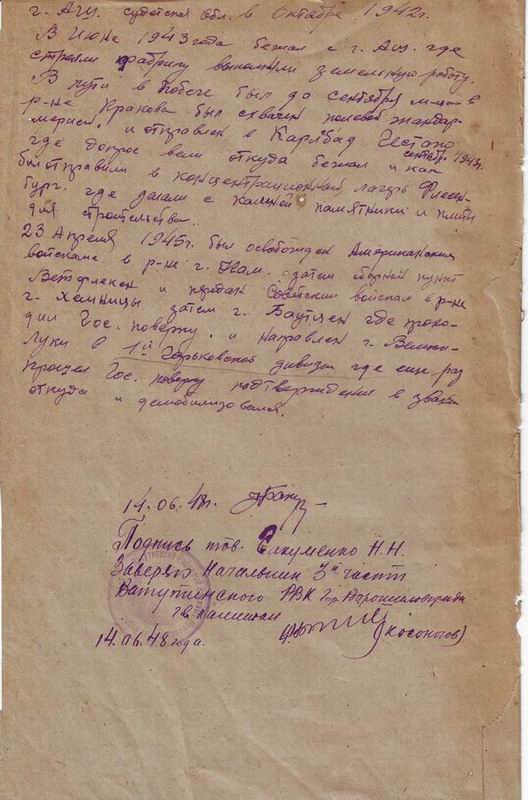 г. Аш. судетская обл. в Октябре 1942г.
В Июне 1943 года бежал с г. Аш. где
строили фабрику выполняли земельную работу.
В пути в побеге был до сентября м-ца в
р-не Кракова был схвачен полевой жандар-
мерией. и отправлен в Карлбад Гестапо
где допрос вели откуда бежал и как сентябр 1943г.
был отправили в концентрационный лагерь Флесен-
бург. где делали с камней памятники и плиты
для строительства.
23 Апреля 1945г. был освобожден Американским
войсками в р-не г. Кам. затем сборный пункт
и передан Советским войскам в р-не
г. Хемницы затем г. Баутцен где прохо-
дил Гос. поверку. и направлен г. Велики-
Луки в 1й Горьковской дивизии где еще раз
прошел Гос. поверку подтверждения в звании
откуда и демобилизовался.
14.06.48г.
Подпись тов. Сакуменко Н.Н.
Заверяю Начальник 3й части
Ватутинского РВК гор. Ворошиловграда
гв. капитан
(Косоногов)
14.06.48 года.